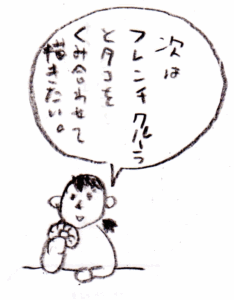 次は
フレンチクルーラ
とタコを
くみ合わせて
描きたい。